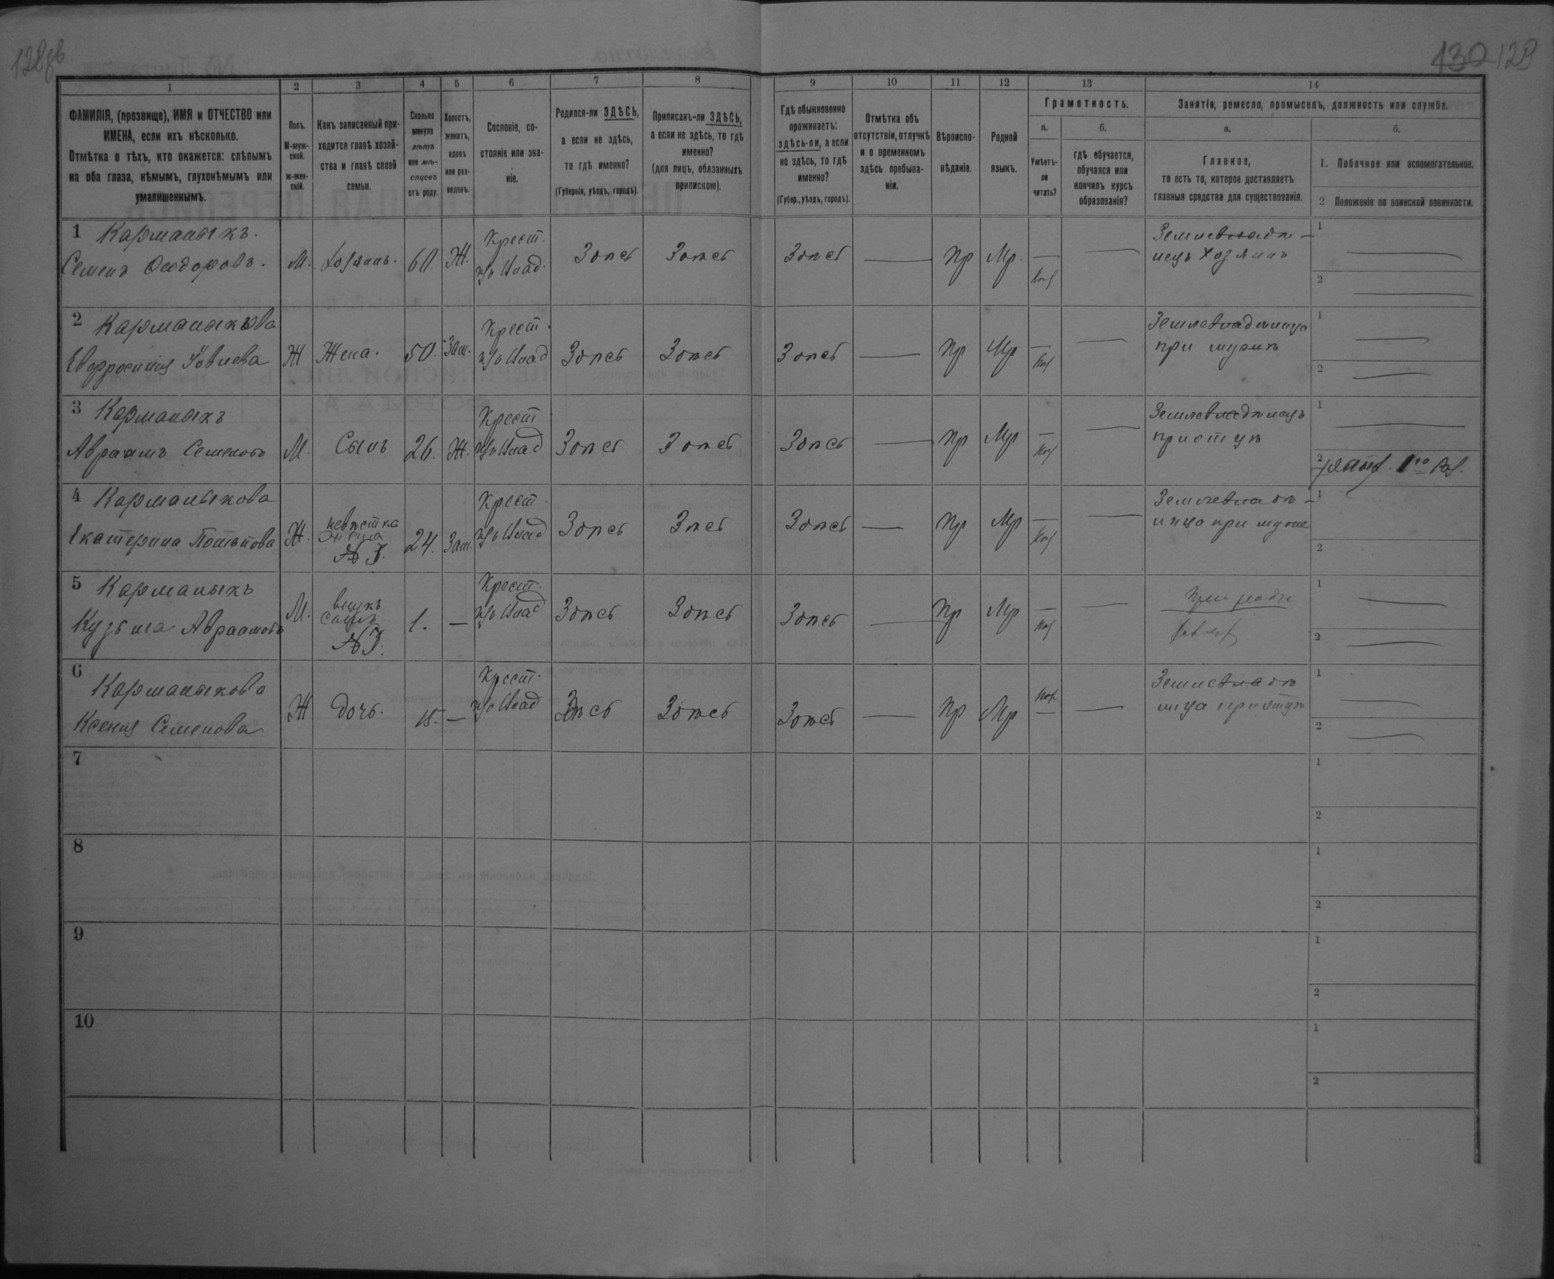 128об
130 128
1 2 3 4 5 6 7 8 9 10 11 12 13 14
ФАМИЛІЯ, (прозвище), ИМЯ и ОТЧЕСТВО или
ИМЕНА, если ихъ нѣсколько.
Отмѣтка о тѣхъ, кто окажется: слѣпымъ
на оба глаза, нѣмымъ, глухонѣмымъ или
умалишеннымъ.
Полъ.
М-муж-
ской.
ж-жен-
скій.
Какъ записанный при-
ходится главѣ хозяй-
ства и главѣ своей
семьи.
Сколько
минуло
лѣтъ
или мѣ-
сяцевъ
отъ роду.
Холостъ,
женатъ,
вдовъ
или раз-
веденъ.
Сословіе, со-
стояніе или зва-
ніе.
Родился-ли ЗДѢСЬ,
а если не здѣсь,
то гдѣ именно?
(Губернія, уѣздъ, городъ).
Приписанъ-ли ЗДѢСЬ,
а если не здѣсь, то гдѣ
именно?
(для лицъ, обязанныхъ
припискою).
Гдѣ обыкновенно
проживаетъ:
здѣсь-ли, а если
не здѣсь, то гдѣ
именно?
(Губер., уѣздъ, городъ).
Отмѣтка объ
отсутствіи, отлучкѣ
и о временномъ
здѣсь пребыва-
ніи.
Вѣроиспо-
вѣданіе.
Родной
языкъ.
Грамотность.
а.
Умѣетъ-
ли
читать?
б.
гдѣ обучается,
обучался или
кончилъ курсъ
образованія?
Занятіе, ремесло, промыселъ, должность или служба.
а.
Главное,
то есть то, которое доставляетъ
главныя средства для существованія.
б.
1. Побочное или вспомогательное.
2 Положеніе по воинской повинности.
1 Кармалыкъ
Семенъ Ѳеодоровъ. М. Хозяинъ. 60. Ж. Крест. Здѣсь Здѣсь Здѣсь — Пр Мр — —
Землевладѣ-
лецъ хозяинъ
1
2
2 Кармалыкова
Евфросинія Іовлева Ж Жена. 50. Зам. Крест. Здѣсь Здѣсь Здѣсь — Пр Мр — —
Землевладѣлица
при мужѣ
1
2
3 Кармалыкъ
Авраамъ Семеновъ М. Сынъ 26. Ж. Крест Здѣсь Здѣсь Здѣсь — Пр Мр — —
Землевладѣлецъ
при отцѣ
1
2
4 Кармалыкова
Екатерина Потапова Ж. невѣстка
жена
№ 3. 24. Зам. Крест. Здѣсь Здѣсь Здѣсь — Пр Мр — —
Землевладѣ-
лица при мужѣ
1
2
5 Кармалыкъ
Кузьма Авраамовъ М. внукъ
сынъ
№ 3. 1. — Крест. Здѣсь Здѣсь Здѣсь — Пр Мр — —
1
2
6 Кармалыкова
Ксенія Семенова Ж дочь. 15. — Крест. Здѣсь Здѣсь Здѣсь — Пр Мр — —
Землевладѣ-
лица при отцѣ
1
2
7
1
2
8
1
2
9
1
2
10
1
2